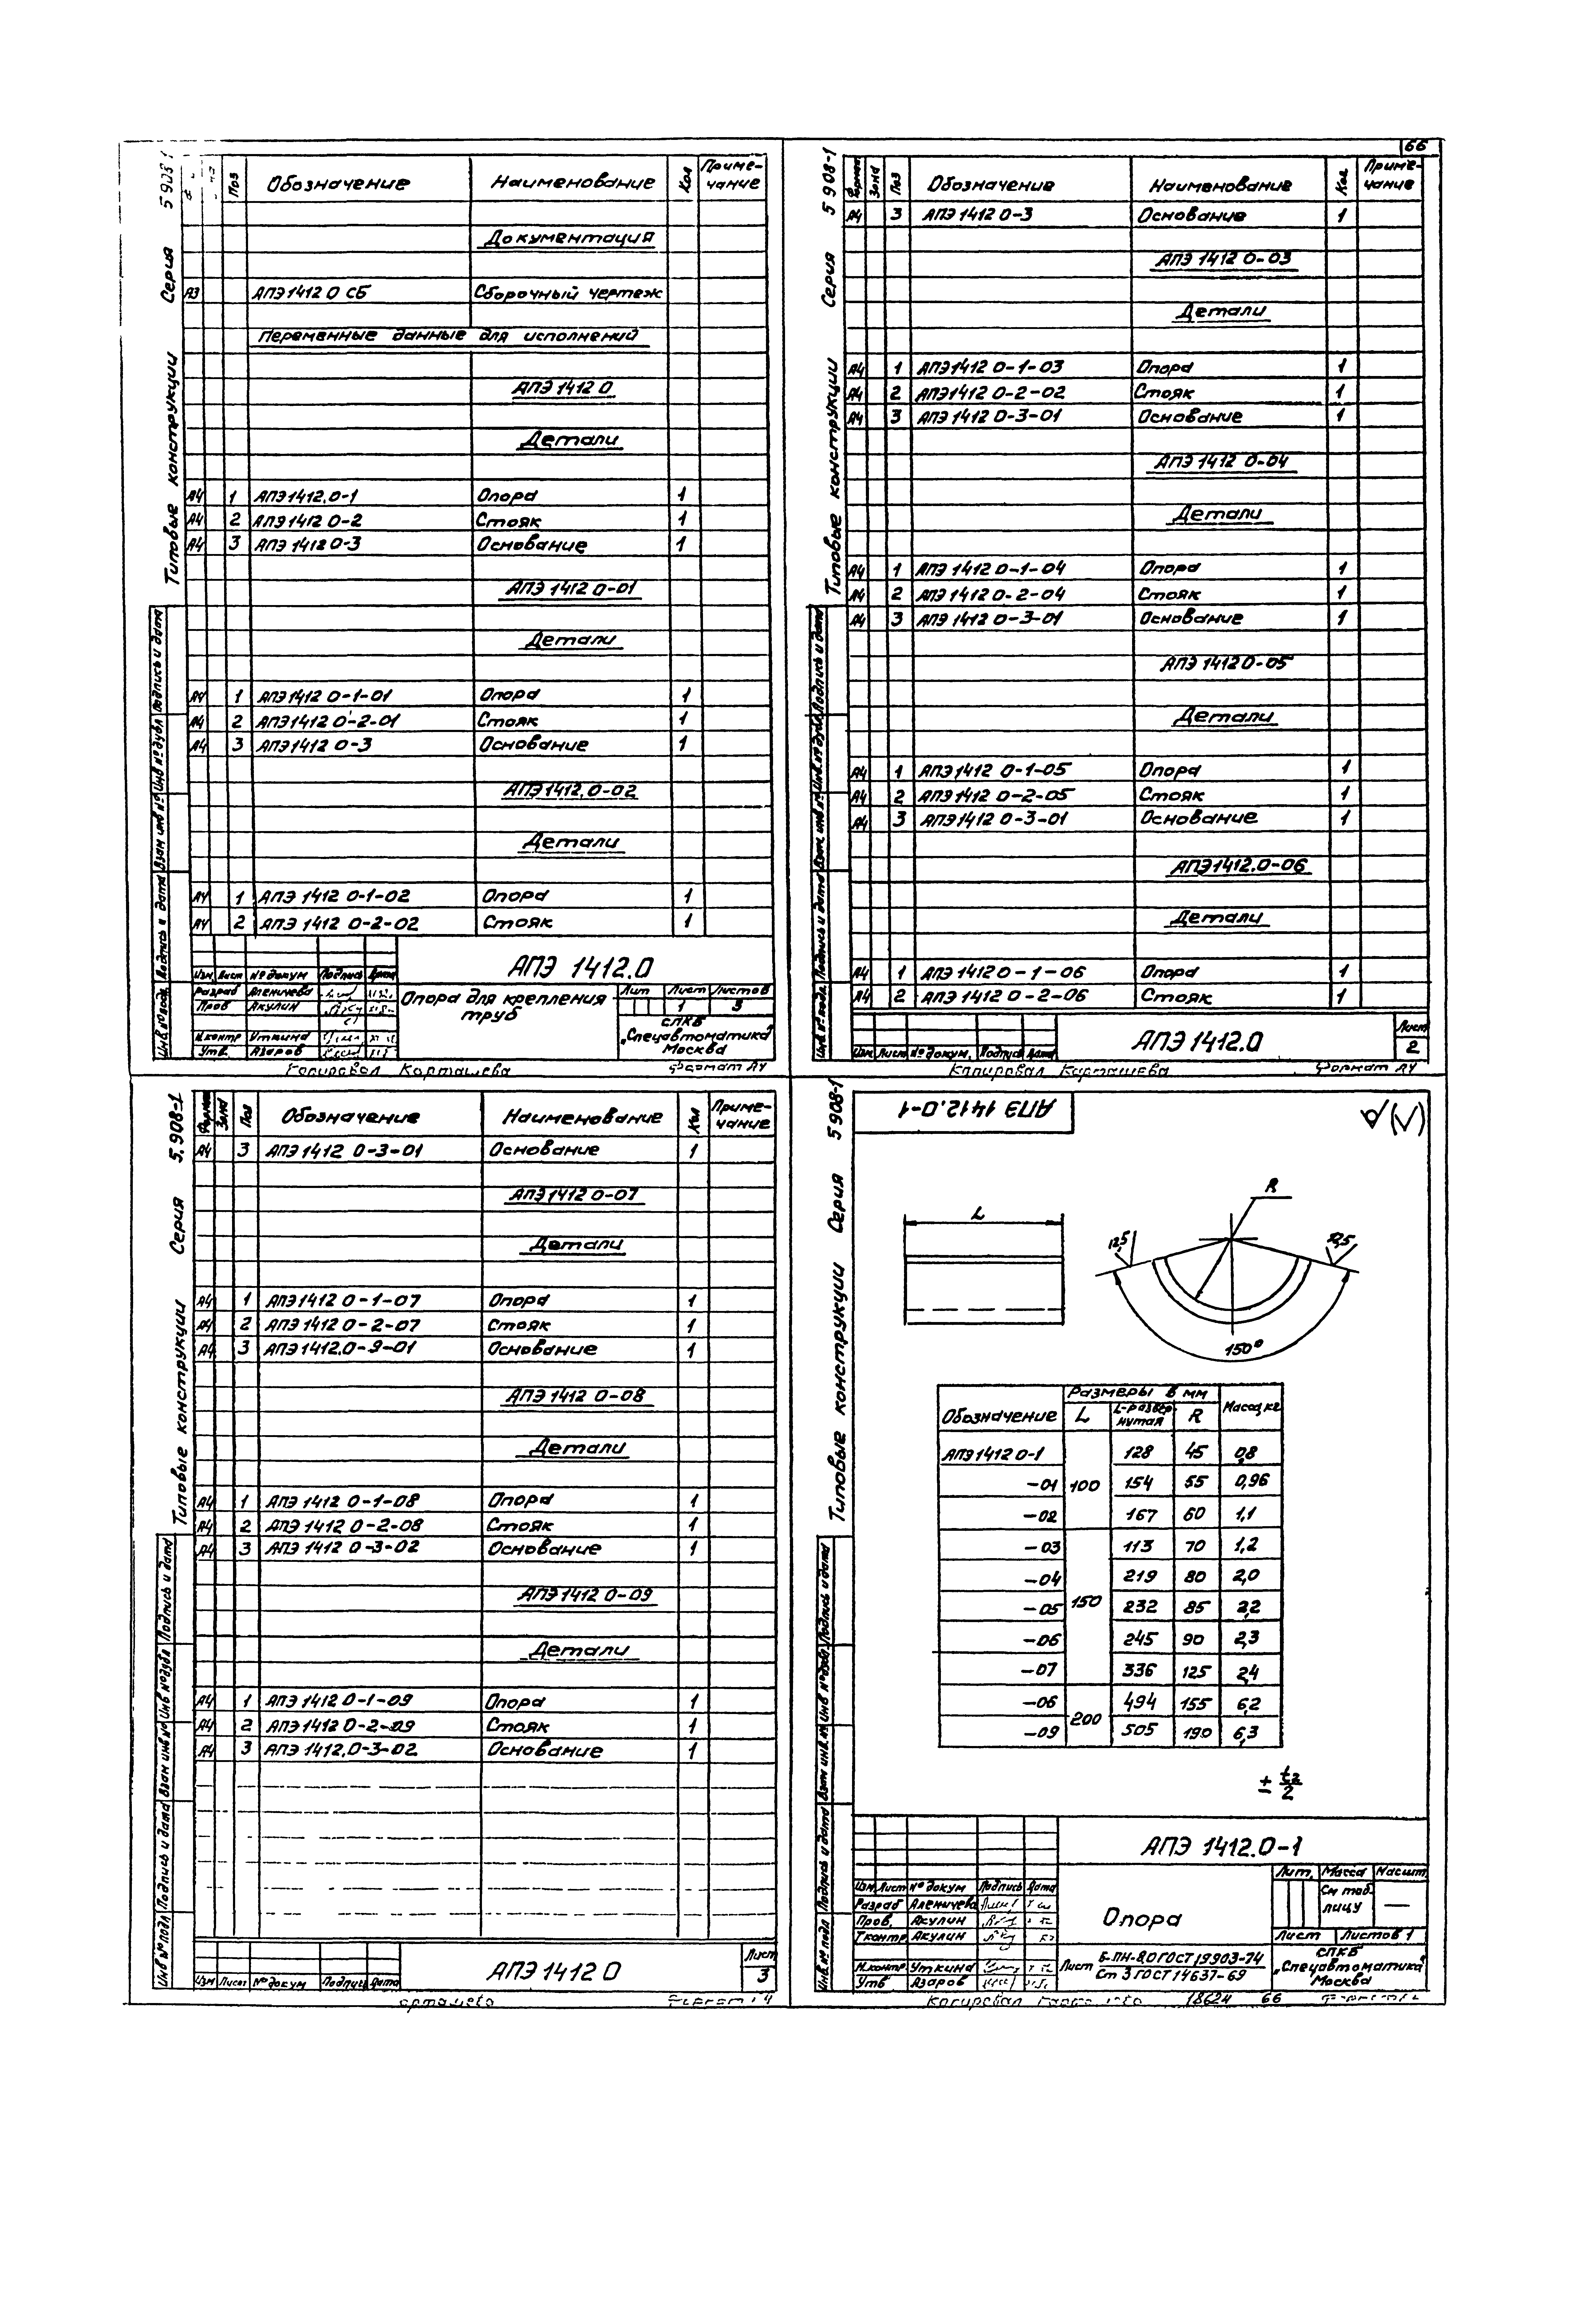 66
Серия 5 908-1
Типовые конструкции
Поз Обозначение Наименование Кол Приме-
чание
Документация
А3 АПЭ 1412 0 СБ Сборочный чертеж
Переменные данные для исполнений
АПЭ 1412 0
Детали
А4 1 АПЭ 1412.0-1 Опора 1
А4 2 АПЭ 1412 0-2 Стояк 1
А4 3 АПЭ 1412 0-3 Основание 1
АПЭ 1412 0-01
Детали
А4 1 АПЭ 1412 0-1-01 Опора 1
А4 2 АПЭ 1412 0-2-01 Стояк 1
А4 3 АПЭ 1412 0-3 Основание 1
АПЭ 1412.0-02
Детали
А4 1 АПЭ 1412 0-1-02 Опора 1
А4 2 АПЭ 1412 0-2-02 Стояк 1
Инв № подл Подпись и дата Взам инв № Инв № дубл Подпись и дата
АПЭ 1412.0
Изм Лист № докум Подпись Дата
Разраб Аленичева
Пров Акулин
Н.контр Уткина
Утв. Азаров
Опора для крепления
труб
Лит Лист Листов
1 3
СПКБ
„Спецавтоматика"
Москва
Копировал Карташева Формат А4
Серия 5 908-1
Типовые конструкции
Формат Зона Поз Обозначение Наименование Кол Приме-
чание
А4 3 АПЭ 1412 0-3 Основание 1
АПЭ 1412 0-03
Детали
А4 1 АПЭ 1412 0-1-03 Опора 1
А4 2 АПЭ 1412 0-2-02 Стояк 1
А4 3 АПЭ 1412 0-3-01 Основание 1
АПЭ 1412 0-04
Детали
А4 1 АПЭ 1412 0-1-04 Опора 1
А4 2 АПЭ 1412 0-2-04 Стояк 1
А4 3 АПЭ 1412 0-3-01 Основание 1
АПЭ 1412 0-05
Детали
А4 1 АПЭ 1412 0-1-05 Опора 1
А4 2 АПЭ 1412 0-2-05 Стояк 1
А4 3 АПЭ 1412 0-3-01 Основание 1
АПЭ 1412.0-06
Детали
А4 1 АПЭ 1412 0-1-06 Опора 1
А4 2 АПЭ 1412 0-2-06 Стояк 1
Инв № подл Подпись и дата Взам инв № Инв № дубл Подпись и дата
Изм Лист № докум. Подпись Дата
АПЭ 1412.0
Лист
2
Копировал Карташева Формат А4
Серия 5.908-1
Типовые конструкции
Формат Зона Поз Обозначение Наименование Кол Приме-
чание
А4 3 АПЭ 1412 0-3-01 Основание 1
АПЭ 1412 0-07
Детали
А4 1 АПЭ 1412 0-1-07 Опора 1
А4 2 АПЭ 1412 0-2-07 Стояк 1
А4 3 АПЭ 1412.0-9-01 Основание 1
АПЭ 1412 0-08
Детали
А4 1 АПЭ 1412 0-1-08 Опора 1
А4 2 АПЭ 1412 0-2-08 Стояк 1
А4 3 АПЭ 1412 0-3-02 Основание 1
АПЭ 1412 0-09
Детали
А4 1 АПЭ 1412 0-1-09 Опора 1
А4 2 АПЭ 1412 0-2-09 Стояк 1
А4 3 АПЭ 1412.0-3-02 Основание 1
Инв № подл Подпись и дата Взам инв № Инв № дубл Подпись и дата
Изм Лист № докум Подпись Дата
АПЭ 1412 0
Лист
3
Серия 5 908-1
Типовые конструкции
АПЭ 1412.0-1
L
R
12,5
12,5
150°
Обозначение Размеры в мм Масса, кг
L L-развер-
нутая R
АПЭ 1412 0-1 128 45 0,8
-01 100 154 55 0,96
-02 167 60 1,1
-03 113 70 1,2
-04 219 80 2,0
-05 150 232 85 2,2
-06 245 90 2,3
-07 336 125 2,4
-06 494 155 6,2
200
-09 505 190 6,3
± t2
2
Инв № подл Подпись и дата Взам инв № Инв № дубл Подпись и дата
АПЭ 1412.0-1
Изм Лист № докум Подпись Дата
Разраб Аленичева
Пров. Акулин
Т контр Акулин
Н.контр Уткина
Утв Азаров
Опора
Лит. Масса Масшт.
См таб-
лицу —
Лист Листов 1
Лист Б-ПН-8,0 ГОСТ 19903-74
Ст 3 ГОСТ 14637-69
СПКБ
„Спецавтоматика"
Москва
Копировал 18624 66